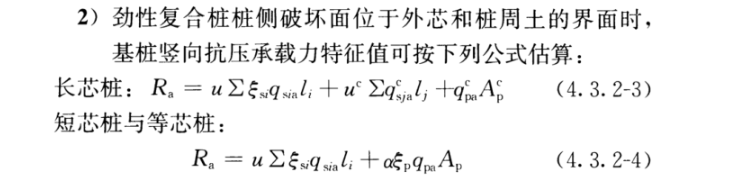 2）劲性复合桩桩侧破坏面位于外芯和桩周土的界面时，
基桩竖向抗压承载力特征值可按下列公式估算：
长芯桩：Rₐ = u Σ ξ_si q_sia l_i + u^c Σ q^c_sja l_j + q^c_pa A^c_p （4.3.2-3）
短芯桩与等芯桩：
Rₐ = u Σ ξ_si q_sia l_i + α ξ_p q_pa A_p （4.3.2-4）